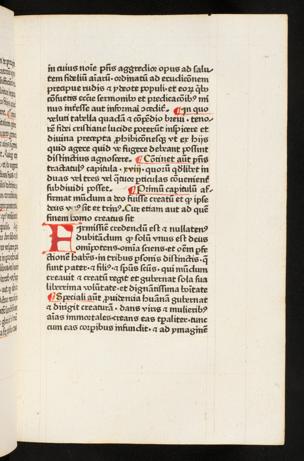 in cuius noīe pn̄s aggredior opus ad salu-
tem fideliū aīarū · ordinatū ad erudicōnem
precipue rudis ⁊ ydeote populi · et eorū qͥbꝫ
cōsuetis eccīe sermonibꝫ et predicacōibꝫ mi
nus infesse aut informari
¶ In quo
veluti tabella quadā ⁊ cōpēdio breui · teno-
rē fidei cristiane lucide poterūt inspicere et
diuina precepta
quoqꝫ agere quid ve fugere debeant possint
distinctius agnoscere · ¶ Cōtinet autē pn̄s
tractatꝰ capitula · xviij · quorū qͦdlibet in
duas vel tres vel qͣtuor pticulas cōuenienē
subdiuidi posset · ¶ Primū capitulū af-
firmat mūdum a deo fuisse creatū et qͥ ipse
deus vnꝰ sit et trinꝰ · Cur etiam aut ad quē
finem homo creatus sit
Firmissīe credendū est ⁊ nullatenꝰ
dubitādum qͥ solꝰ vnus est deus
omīpotens · omīa sciens · et oēm pfe-
ctionē habēs · in tribus psonis distinctis · qͥ
sunt pater · ⁊ filiꝰ · ⁊ spūs scūs · qui mūdum
creauit ⁊ creatū regit et gubernat sola sua
liberrima volūtate · et dignātissima bōitate
¶ Speciali autē puidentia humanā gubernat
⁊ dirigit creaturā · dans viris ⁊ mulieribꝫ
aīas immortales · creans eas tꝑaliter · tunc
cum eas corꝑibus infundit · ⁊ ad ymaginē